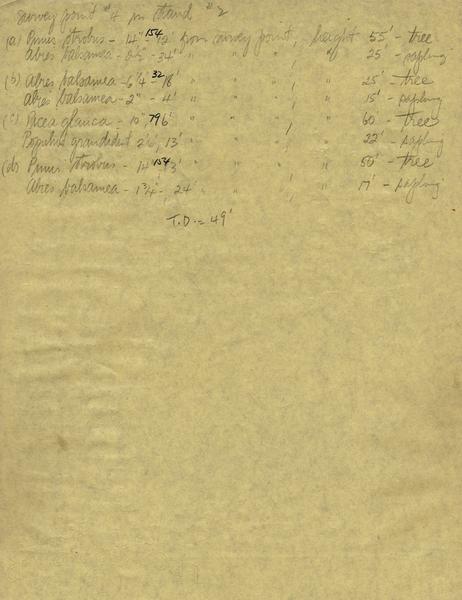 Survey point #4 in stand #2
(a) Pinus strobus - 14" 154 12' from survey point, height 55' - tree
Abies balsamea - 34' " " " " 25' - sapling
(b) Abies balsamea - 6¼" 32 18' " " " " 25' - tree
Abies balsamea - 2" - 4' " " " " 15' - sapling
(c) Picea glauca - 10" 79 6' " " " " 60' - trees
Populus grandident 13' " " " " 22' - sapling
(d) Pinus strobus - 14" 154 13' " " " " 50' - tree
Abies balsamea - 1¾" - 24' " " " " 17' - sapling
T.D. = 49'